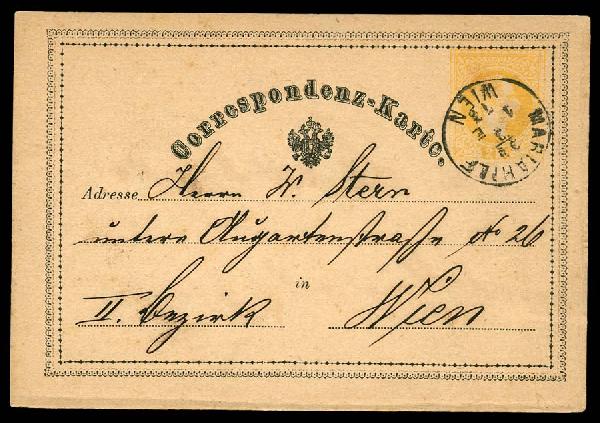 Correspondenz-Karte.
MARIAHILF
WIEN
Adresse Herrn W. Stern
untere Augartenstraße No 26
in
II. Bezirk Wien